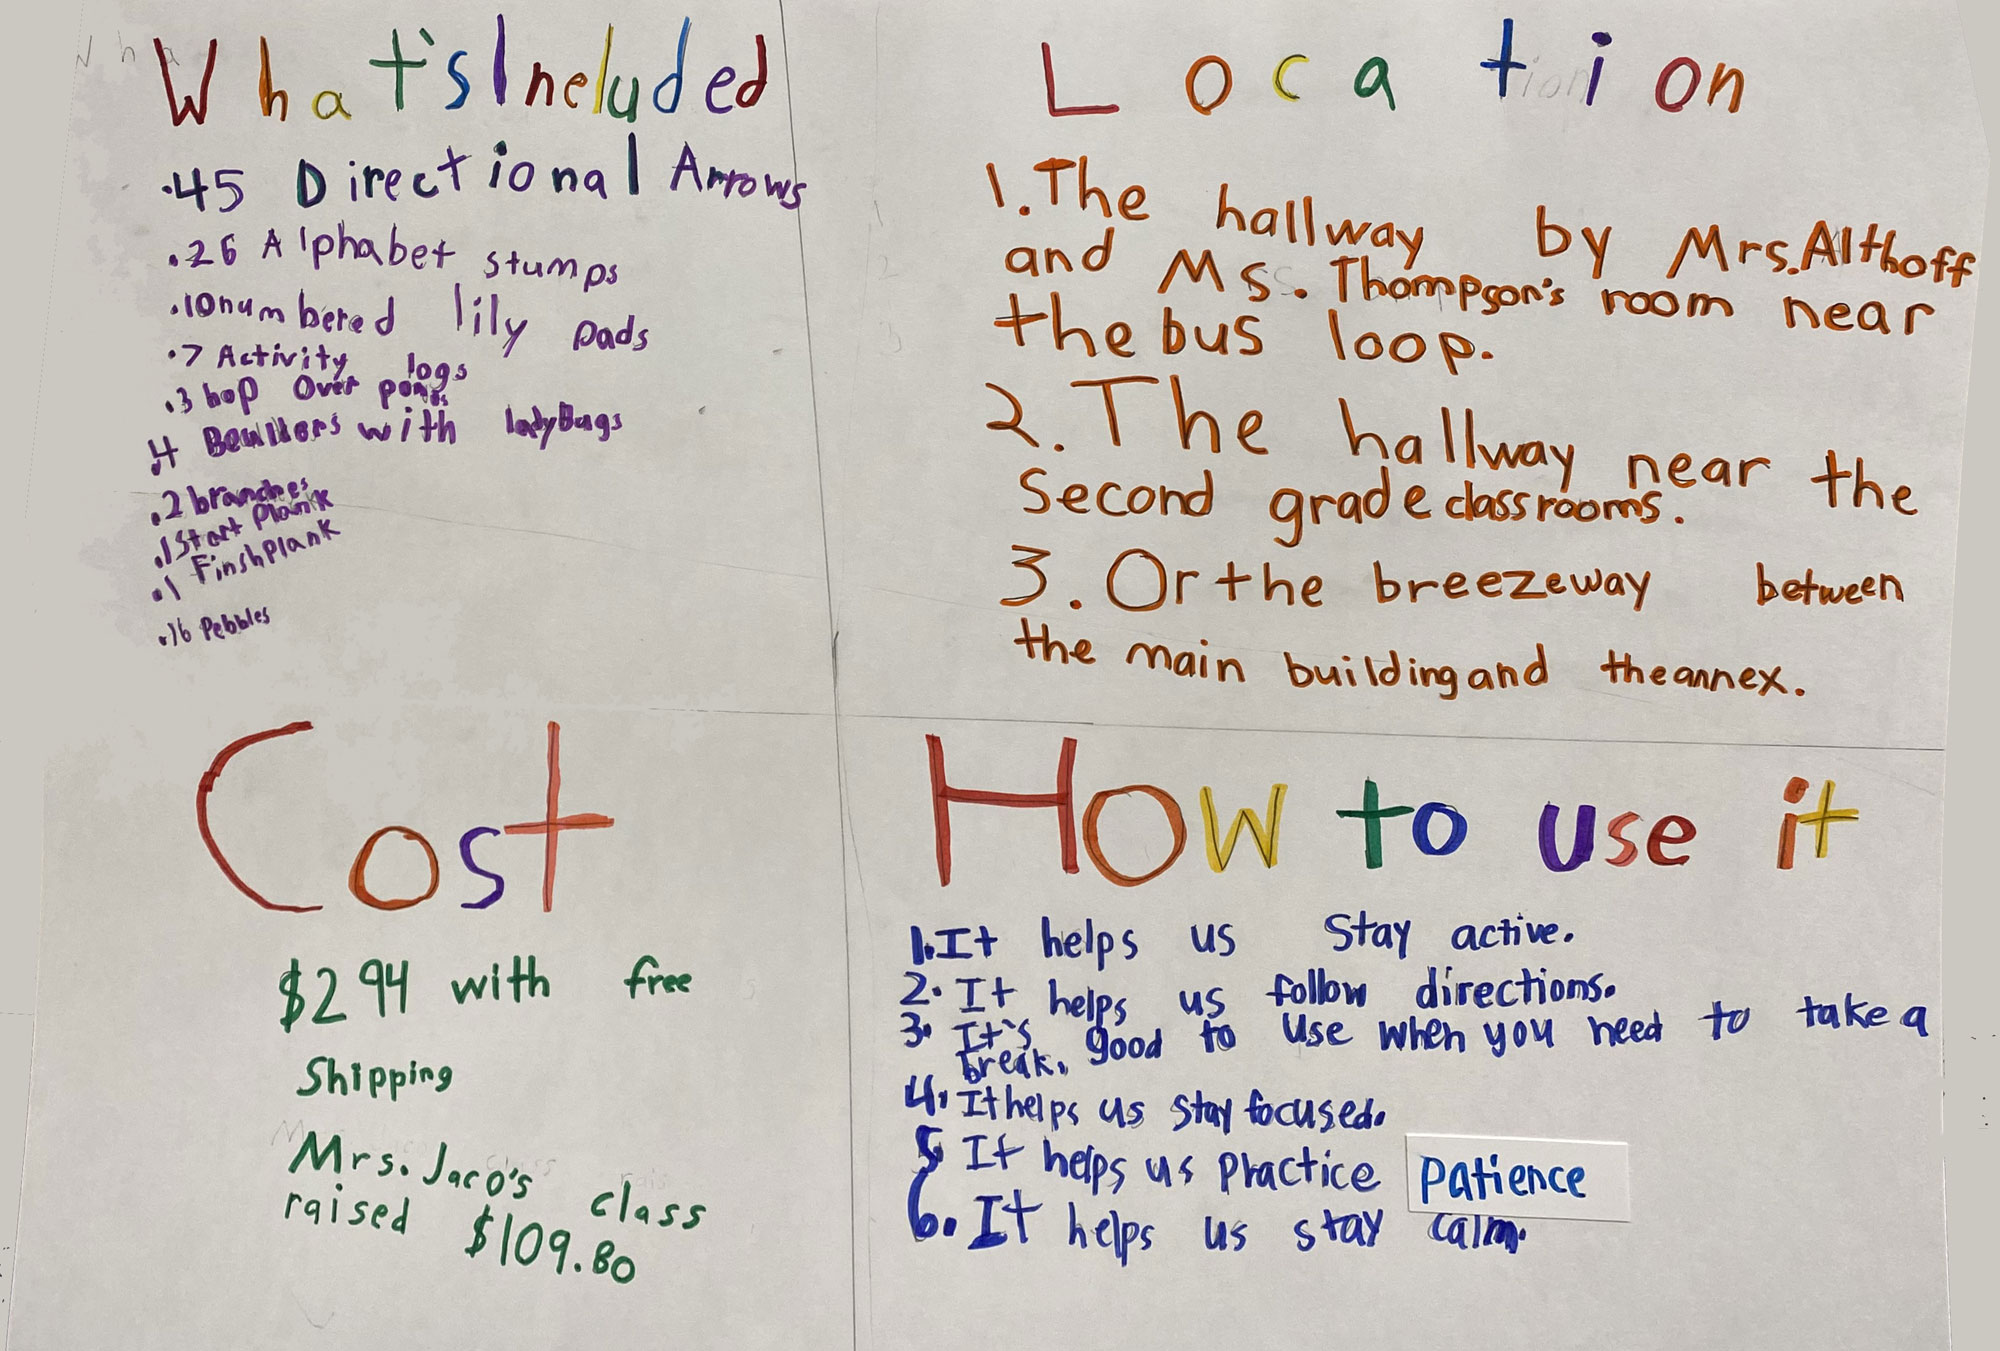 What's Included
.45 Directional Arrows
.26 Alphabet stumps
.10 numbered lily pads
.7 Activity logs
.3 hop over ponds
.4 with ladyBugs
.2 branches
.1 Start Plank
.1 Finsh Plank
.16 Pebbles
Location
1. The hallway by Mrs. Althoff
and Ms. Thompson's room near
the bus loop.
2. The hallway near the
Second grade classrooms.
3. Or the breezeway between
the main building and the annex.
Cost
$294 with free
Shipping
Mrs. Jaco's class
raised $109.80
How to use it
1. It helps us Stay active.
2. It helps us follow directions.
3. It's good to use when you need to take a
break.
4. It helps us stay focused.
5 It helps us Practice Patience
6. It helps us stay calm.